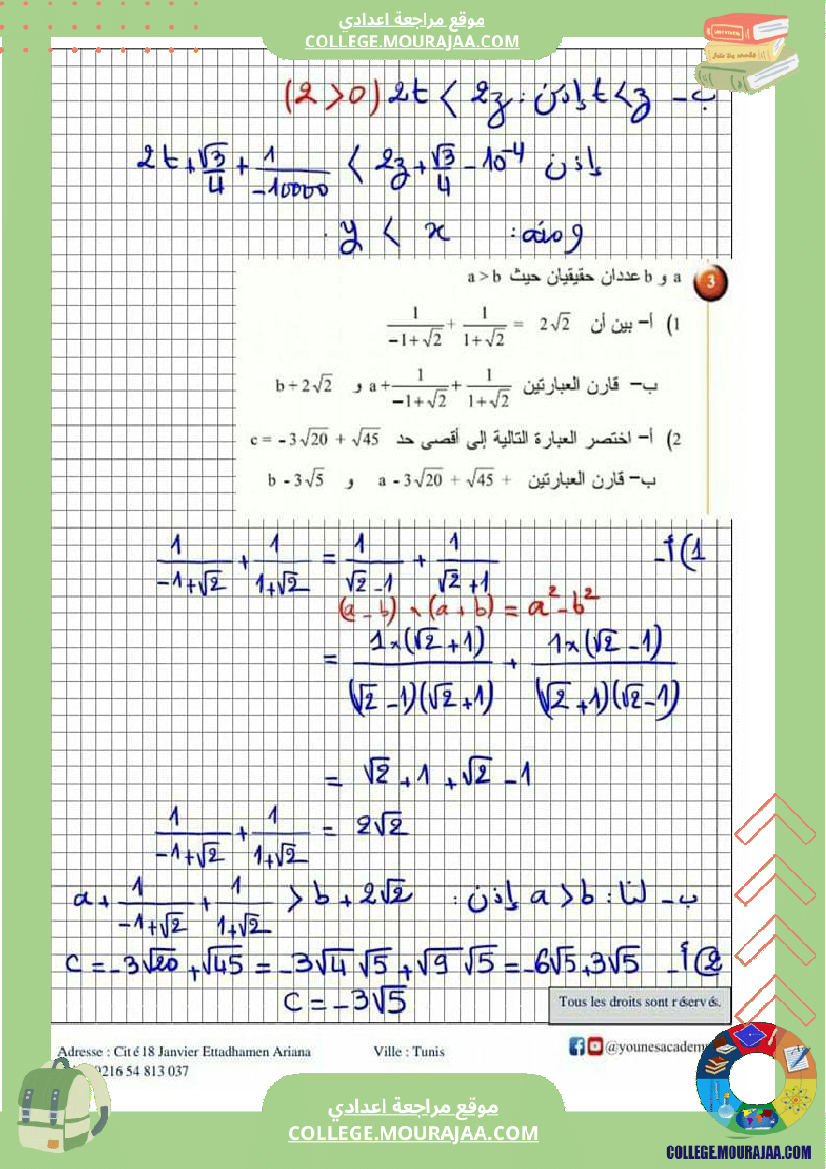 موقع مراجعة اعدادي
COLLEGE.MOURAJAA.COM
ب- t < z إذن: 2t < 2z (2 > 0)
إذن 2t + √3/4 + 1/-10000 < 2z + √3/4 - 10⁻⁴
ومنه: y < x.
3 a و b عددان حقيقيان حيث a > b
1) أ- بين أن 1/(-1+√2) + 1/(1+√2) = 2√2
ب- قارن العبارتين a + 1/(-1+√2) + 1/(1+√2) و b + 2√2
2) أ- اختصر العبارة التالية إلى أقصى حد c = -3√20 + √45
ب- قارن العبارتين a - 3√20 + √45 + و b - 3√5
1) أ- 1/(-1+√2) + 1/(1+√2) = 1/(√2-1) + 1/(√2+1)
(a - b) × (a + b) = a² - b²
= 1×(√2+1)/((√2-1)(√2+1)) + 1×(√2-1)/((√2+1)(√2-1))
= √2 + 1 + √2 - 1
1/(-1+√2) + 1/(1+√2) = 2√2
ب- لنا: a > b إذن: a + 1/(-1+√2) + 1/(1+√2) > b + 2√2
2) أ- C = -3√20 + √45 = -3√4 √5 + √9 √5 = -6√5 + 3√5
C = -3√5
Tous les droits sont réservés.
Adresse : Cité 18 Janvier Ettadhamen Ariana Ville : Tunis @younesacadem
9216 54 813 037
موقع مراجعة اعدادي
COLLEGE.MOURAJAA.COM
COLLEGE.MOURAJAA.COM